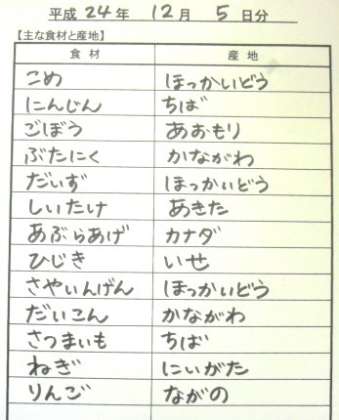 平成24年 12月 5日分
【主な食材と産地】
食材 産地
こめ ほっかいどう
にんじん ちば
ごぼう あおもり
ぶたにく かながわ
だいず ほっかいどう
しいたけ あきた
あぶらあげ カナダ
ひじき いせ
さやいんげん ほっかいどう
だいこん かながわ
さつまいも ちば
ねぎ にいがた
りんご ながの